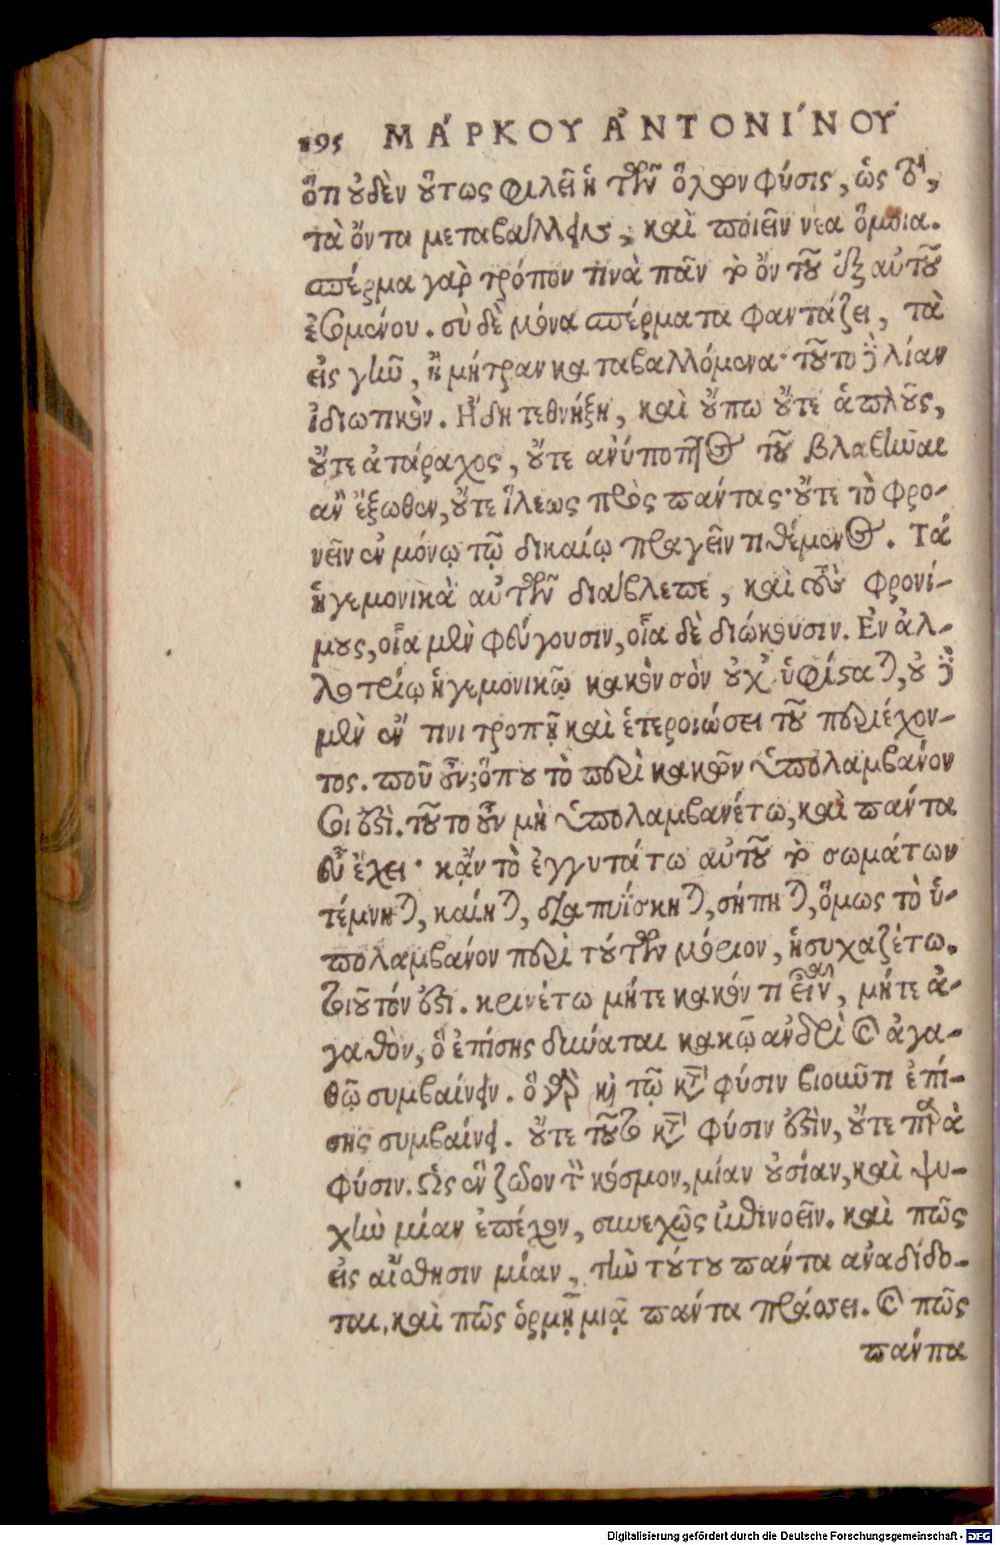 195 ΜΆΡΚΟΥ ἈΝΤΟΝΊΝΟΥ
ὅτι οὐδὲν οὕτως φιλεῖ ἡ τῶν ὅλων φύσις, ὡς τὸ,
τὰ ὄντα μεταβάλλειν, καὶ ποιεῖν νέα ὅμοια.
σπέρμα γὰρ τρόπον τινὰ πᾶν τὸ ὂν τοῦ ἐξ αὐτοῦ
ἐσομένου. σὺ δὲ μόνα σπέρματα φαντάζει, τὰ
εἰς γῆν, ἢ μήτραν καταβαλλόμενα· τοῦτο δὲ λίαν
ἰδιωτικόν. Ἤδη τεθνήξῃ, καὶ οὔπω οὔτε ἁπλοῦς,
οὔτε ἀτάραχος, οὔτε ἀνύποπτος τοῦ βλαβῆναι
ἂν ἔξωθεν, οὔτε ἵλεως πρὸς πάντας· οὔτε τὸ φρο-
νεῖν ἐν μόνῳ τῷ δικαίῳ πραγεῖν τιθέμενος. Τά
ἡγεμονικὰ αὐτῶν διάβλεπε, καὶ τοὺς φρονί-
μους, οἷα μὲν φεύγουσιν, οἷα δὲ διώκουσιν. Ἐν ἀλ-
λοτρίῳ ἡγεμονικῷ κακὸν σὸν οὐχ ὑφίσταται, οὐ δὲ
μὲν ἔν τινι τροπῇ καὶ ἑτεροιώσει τοῦ περιέχον-
τος. ποῦ οὖν; ὅπου τὸ περὶ κακῶν ὑπολαμβάνον
σοι ἐστὶ. τοῦτο οὖν μὴ ὑπολαμβανέτω, καὶ πάντα
εὖ ἔχει· κᾂν τὸ ἐγγυτάτω αὐτοῦ τὸ σωμάτων
τέμνηται, καίηται, διαπυΐσκηται, σήπηται, ὅμως τὸ ὑ-
πολαμβάνον περὶ τούτων μόριον, ἡσυχαζέτω.
τουτόν ἐστι. κρινέτω μήτε κακόν τι εἶναι, μήτε ἀ-
γαθὸν, ὃ ἐπίσης δύναται κακῷ ἀνδρὶ καὶ ἀγα-
θῷ συμβαίνειν. ὃ γὰρ καὶ τῷ κατὰ φύσιν βιοῦντι ἐπί-
σης συμβαίνει. οὔτε τοῦτο κατὰ φύσιν ἐστὶν, οὔτε παρὰ
φύσιν. Ὡς ἓν ζῶον τὸν κόσμον, μίαν οὐσίαν, καὶ ψυ-
χὴν μίαν ἐπέχον, συνεχῶς ἐπινοεῖν. καὶ πῶς
εἰς αἴσθησιν μίαν, τὴν τούτου πάντα ἀναδίδο-
ται, καὶ πῶς ὁρμῇ μιᾷ πάντα πράσσει. καὶ πῶς
πάντα
Digitalisierung gefördert durch die Deutsche Forschungsgemeinschaft - DFG